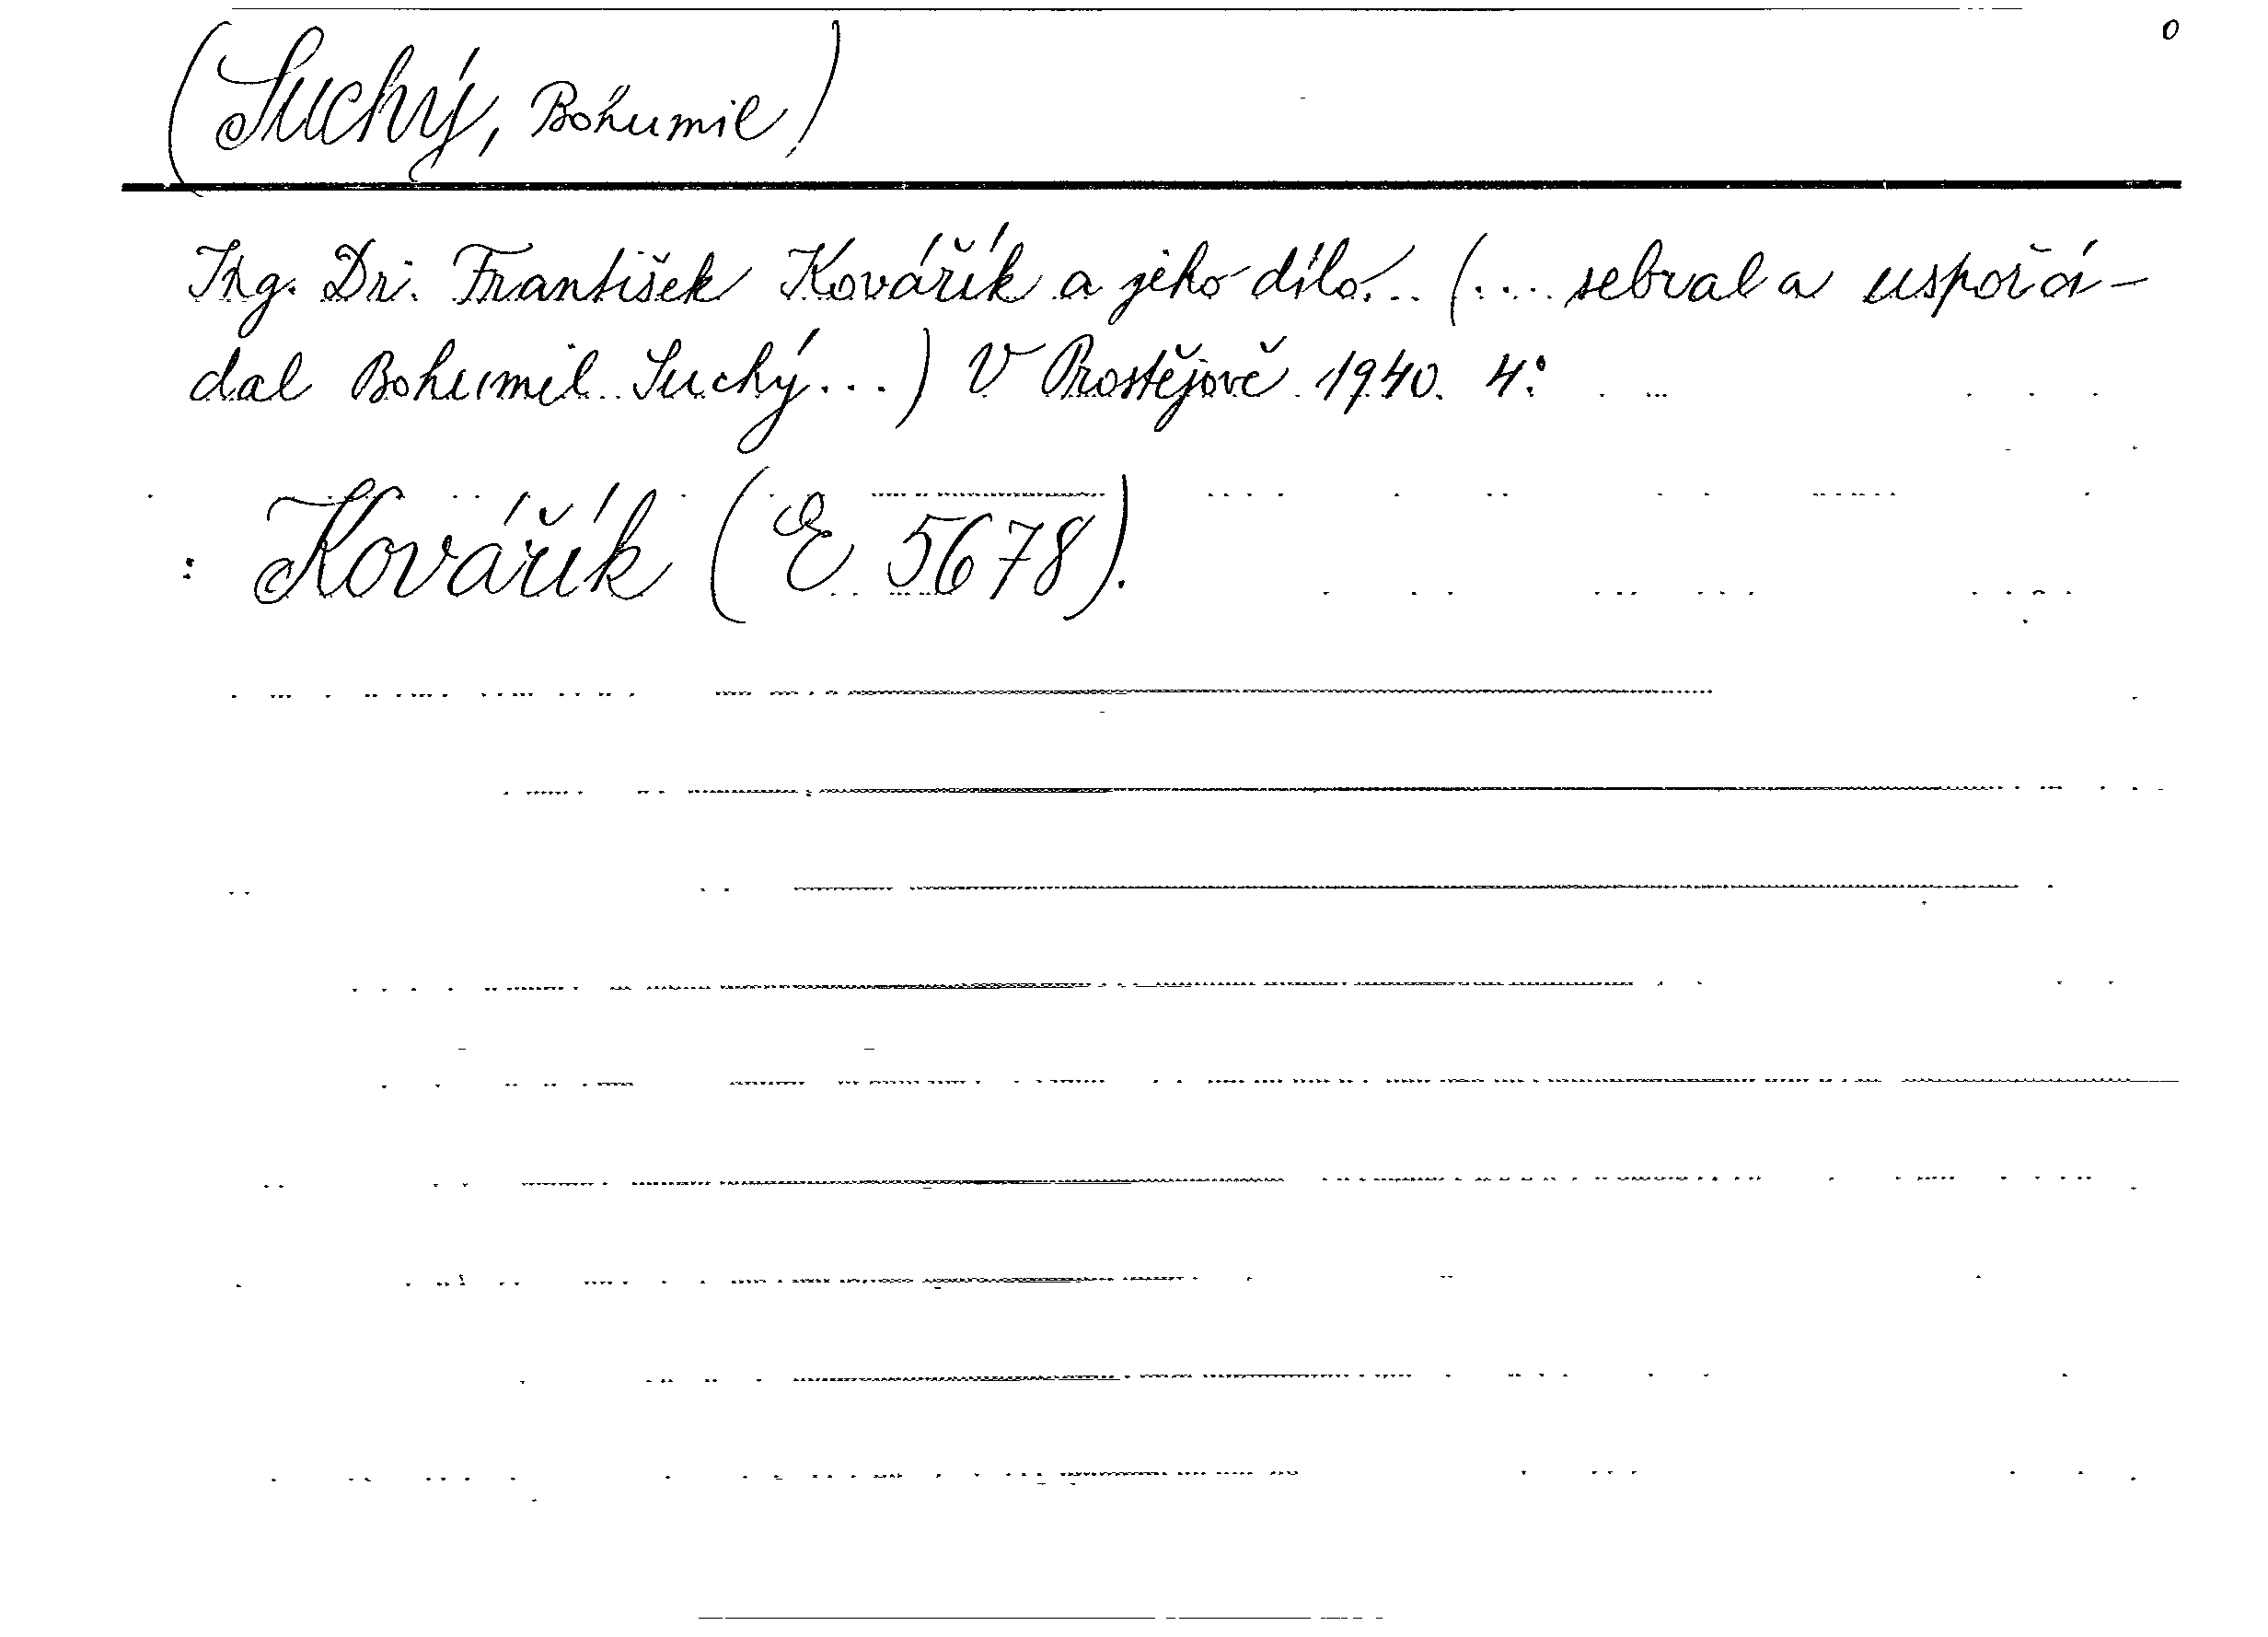 o
(Suchý, Bohumil)
Ing. Dr. František Kovářík a jeho dílo... (.... sebral a uspořá-
dal Bohumil Suchý...) V Prostějově 1940. 4°.
: Kovářík (E 5678).